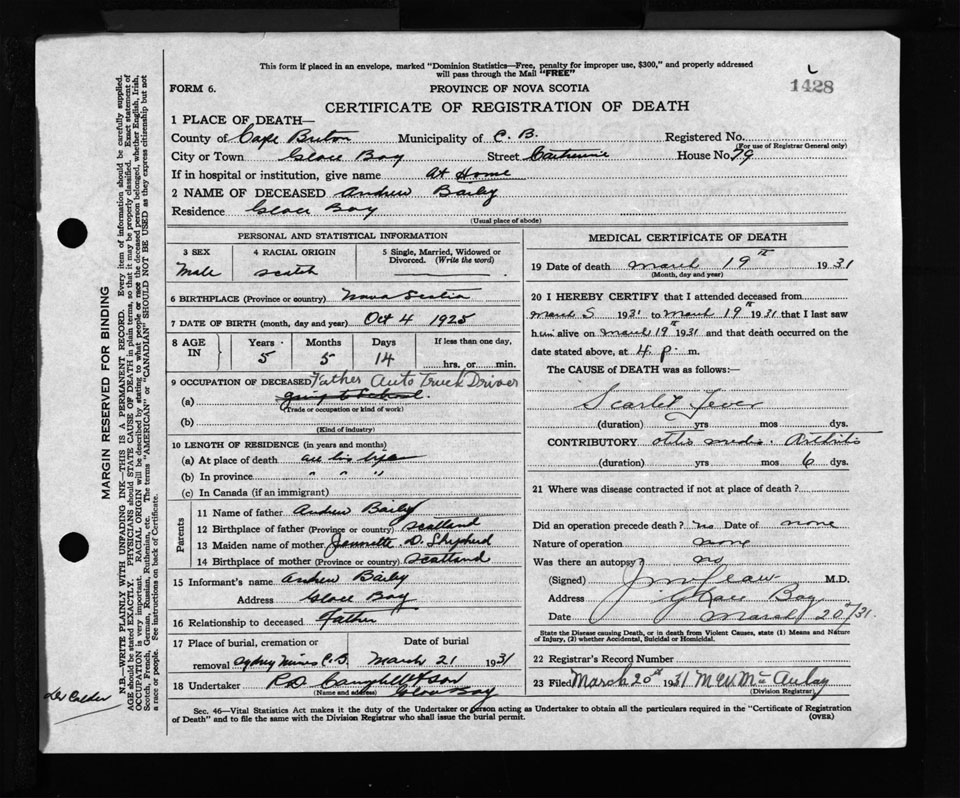 This form if placed in an envelope, marked "Dominion Statistics—Free, penalty for improper use, $300," and properly addressed
will pass through the Mail "FREE"
1428
FORM 6.
PROVINCE OF NOVA SCOTIA
CERTIFICATE OF REGISTRATION OF DEATH
1 PLACE OF DEATH—
County of Cape Breton Municipality of C. B. Registered No.
(For use of Registrar General only)
City or Town Glace Bay Street Catherine House No. 79
If in hospital or institution, give name At Home
2 NAME OF DECEASED Andrew Baily
Residence Glace Bay
(Usual place of abode)
PERSONAL AND STATISTICAL INFORMATION
3 SEX 4 RACIAL ORIGIN 5 Single, Married, Widowed or Divorced. (Write the word)
Male Scotch
6 BIRTHPLACE (Province or country) Nova Scotia
7 DATE OF BIRTH (month, day and year) Oct 4 1925
8 AGE IN Years Months Days If less than one day,
5 5 14 hrs. or min.
9 OCCUPATION OF DECEASED Father Auto Truck Driver
(a) going to School.
(Trade or occupation or kind of work)
(b)
(Kind of industry)
10 LENGTH OF RESIDENCE (in years and months)
(a) At place of death all his life
(b) In province " " "
(c) In Canada (if an immigrant)
Parents
11 Name of father Andrew Baily
12 Birthplace of father (Province or country) Scotland
13 Maiden name of mother Jannette D. Shepherd
14 Birthplace of mother (Province or country) Scotland
15 Informant's name Andrew Baily
Address Glace Bay
16 Relationship to deceased Father
17 Place of burial, cremation or removal Sydney Mines C.B. Date of burial March 21 1931
18 Undertaker R.D. Campbell & Son
(Name and address) Glace Bay
MEDICAL CERTIFICATE OF DEATH
19 Date of death March 19th 1931
(Month, day and year)
20 I HEREBY CERTIFY that I attended deceased from
March 5 1931 to March 19th 1931 that I last saw
him alive on March 19th 1931 and that death occurred on the
date stated above, at 4 p. m.
The CAUSE of DEATH was as follows:—
Scarlet Fever
(duration) yrs mos dys.
CONTRIBUTORY otitis media. Arthritis
(duration) yrs mos 6 dys.
21 Where was disease contracted if not at place of death?
Did an operation precede death? no Date of none
Nature of operation none
Was there an autopsy? no
(Signed) M.D.
Address Glace Bay
Date March 20th/31.
State the Disease causing Death, or in death from Violent Causes, state (1) Means and Nature
of Injury, (2) whether Accidental, Suicidal or Homicidal.
22 Registrar's Record Number
23 Filed March 20th 1931 McAulay
(Division Registrar)
Sec. 46—Vital Statistics Act makes it the duty of the Undertaker or person acting as Undertaker to obtain all the particulars required in the "Certificate of Registration
of Death" and to file the same with the Division Registrar who shall issue the burial permit.
(OVER)
MARGIN RESERVED FOR BINDING
N.B.—WRITE PLAINLY WITH UNFADING INK—THIS IS A PERMANENT RECORD. Every item of information should be carefully supplied.
AGE should be stated EXACTLY. PHYSICIANS should STATE CAUSE OF DEATH in plain terms, so that it may be properly classified. Exact statement of
OCCUPATION is very important. RACIAL ORIGIN will be described by stating to what people or race the deceased person belonged, whether English, Irish,
Scotch, French, German, Russian, Ruthenian, etc. The terms "AMERICAN" or "CANADIAN" SHOULD NOT BE USED as they express citizenship but not
a race or people. See instructions on back of Certificate.
Calder